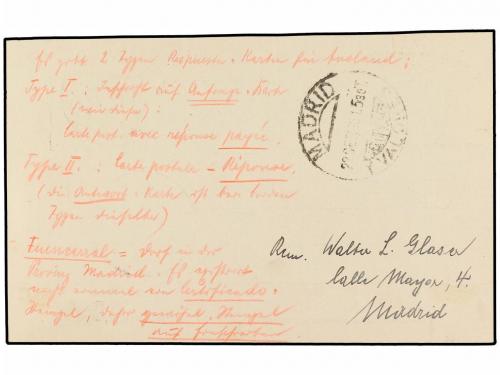 Es gibt 2 Typen Respuesta-Karten für Ausland:
Type I.: Inschrift auf Anfrage-Karte
Carte post. avec réponse payée.
Type II.: Carte postale - Réponse.
(die Antwort-Karte ist bei beiden
Typen dieselbe)
Fuencarral = Dorf in der
Provinz Madrid. Es existiert
nicht einmal ein Certificado-
Stempel, daher
MADRID
Rem. Walter L. Glaser
Calle Mayor, 4.
Madrid